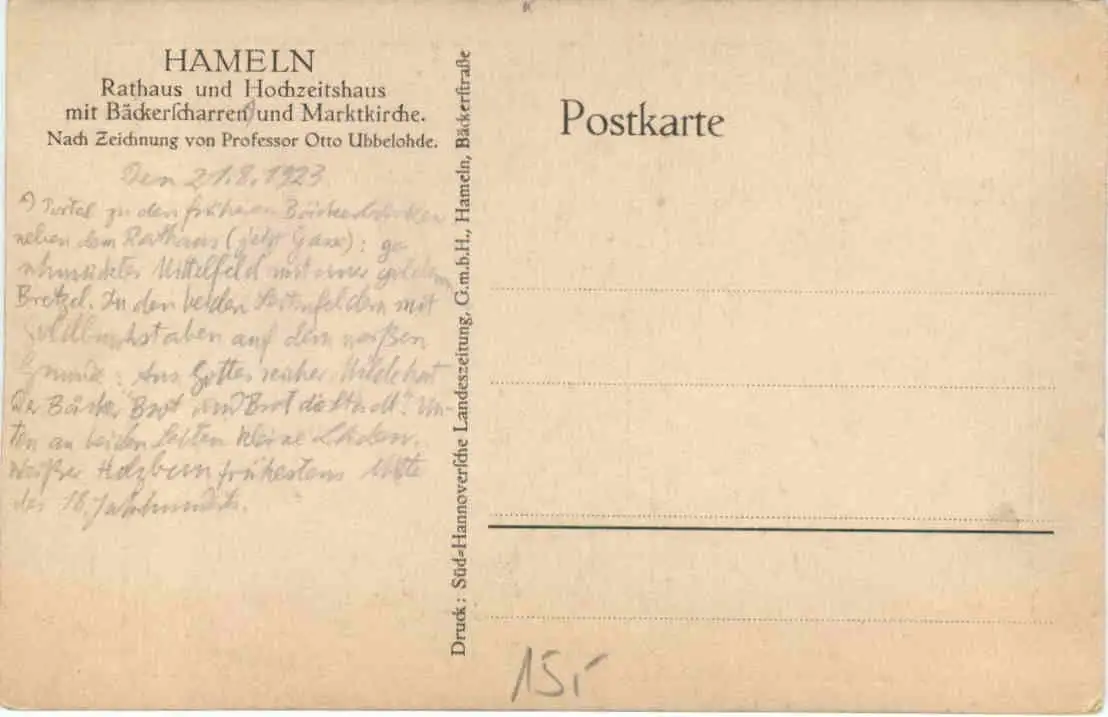 HAMELN
Rathaus und Hochzeitshaus
mit Bäckerſcharren und Marktkirche.
Nach Zeichnung von Profeſſor Otto Ubbelohde.
Den 21.8.1923
Portal zu den früheren
neben dem Rathaus (jetzt ):
Mittelfeld mit einer
Bretzel. In den beiden Seitenfeldern mit
Goldbuchstaben auf dem weißen
Grunde: Aus Gottes reicher
Der Bäcker Brot und Brot die Stadt. Un-
ten an beiden Seiten kleine Läden.
Weißer frühestens Mitte
des 18. Jahrhunderts.
Druck: Süd=Hannoverſche Landeszeitung, G.m.b.H., Hameln, Bäckerſtraße
Postkarte
15,-